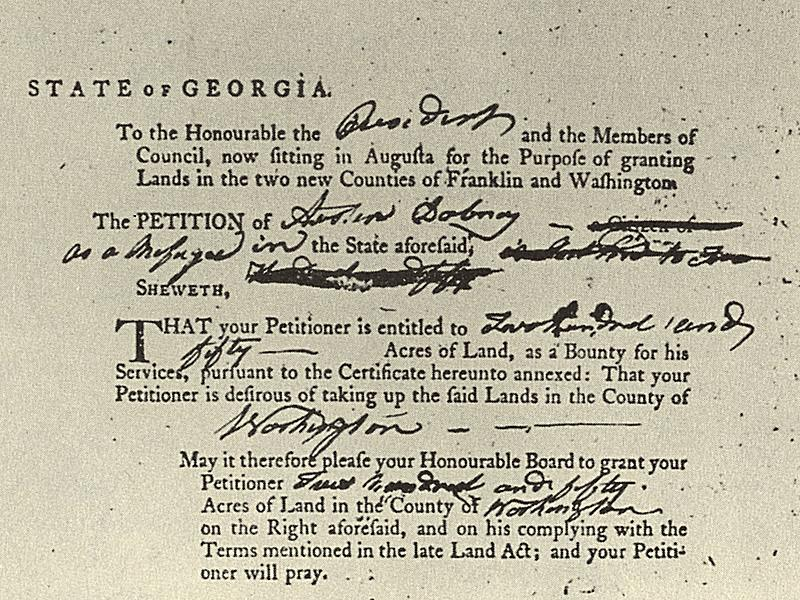 STATE OF GEORGIA.
To the Honourable the President and the Members of
Council, now ſitting in Auguſta for the Purpoſe of granting
Lands in the two new Counties of Franklin and Waſhington
The PETITION of Austin Dabney — a Citizen of
as a Refugee in the State aforeſaid;
SHEWETH,
THAT your Petitioner is entitled to Two Hundred and
fifty — Acres of Land, as a Bounty for his
Services, purſuant to the Certificate hereunto annexed: That your
Petitioner is deſirous of taking up the ſaid Lands in the County of
Washington — —
May it therefore pleaſe your Honourable Board to grant your
Petitioner Two hundred and fifty
Acres of Land in the County of Washington
on the Right aforeſaid, and on his complying with the
Terms mentioned in the late Land Act; and your Petiti-
oner will pray.